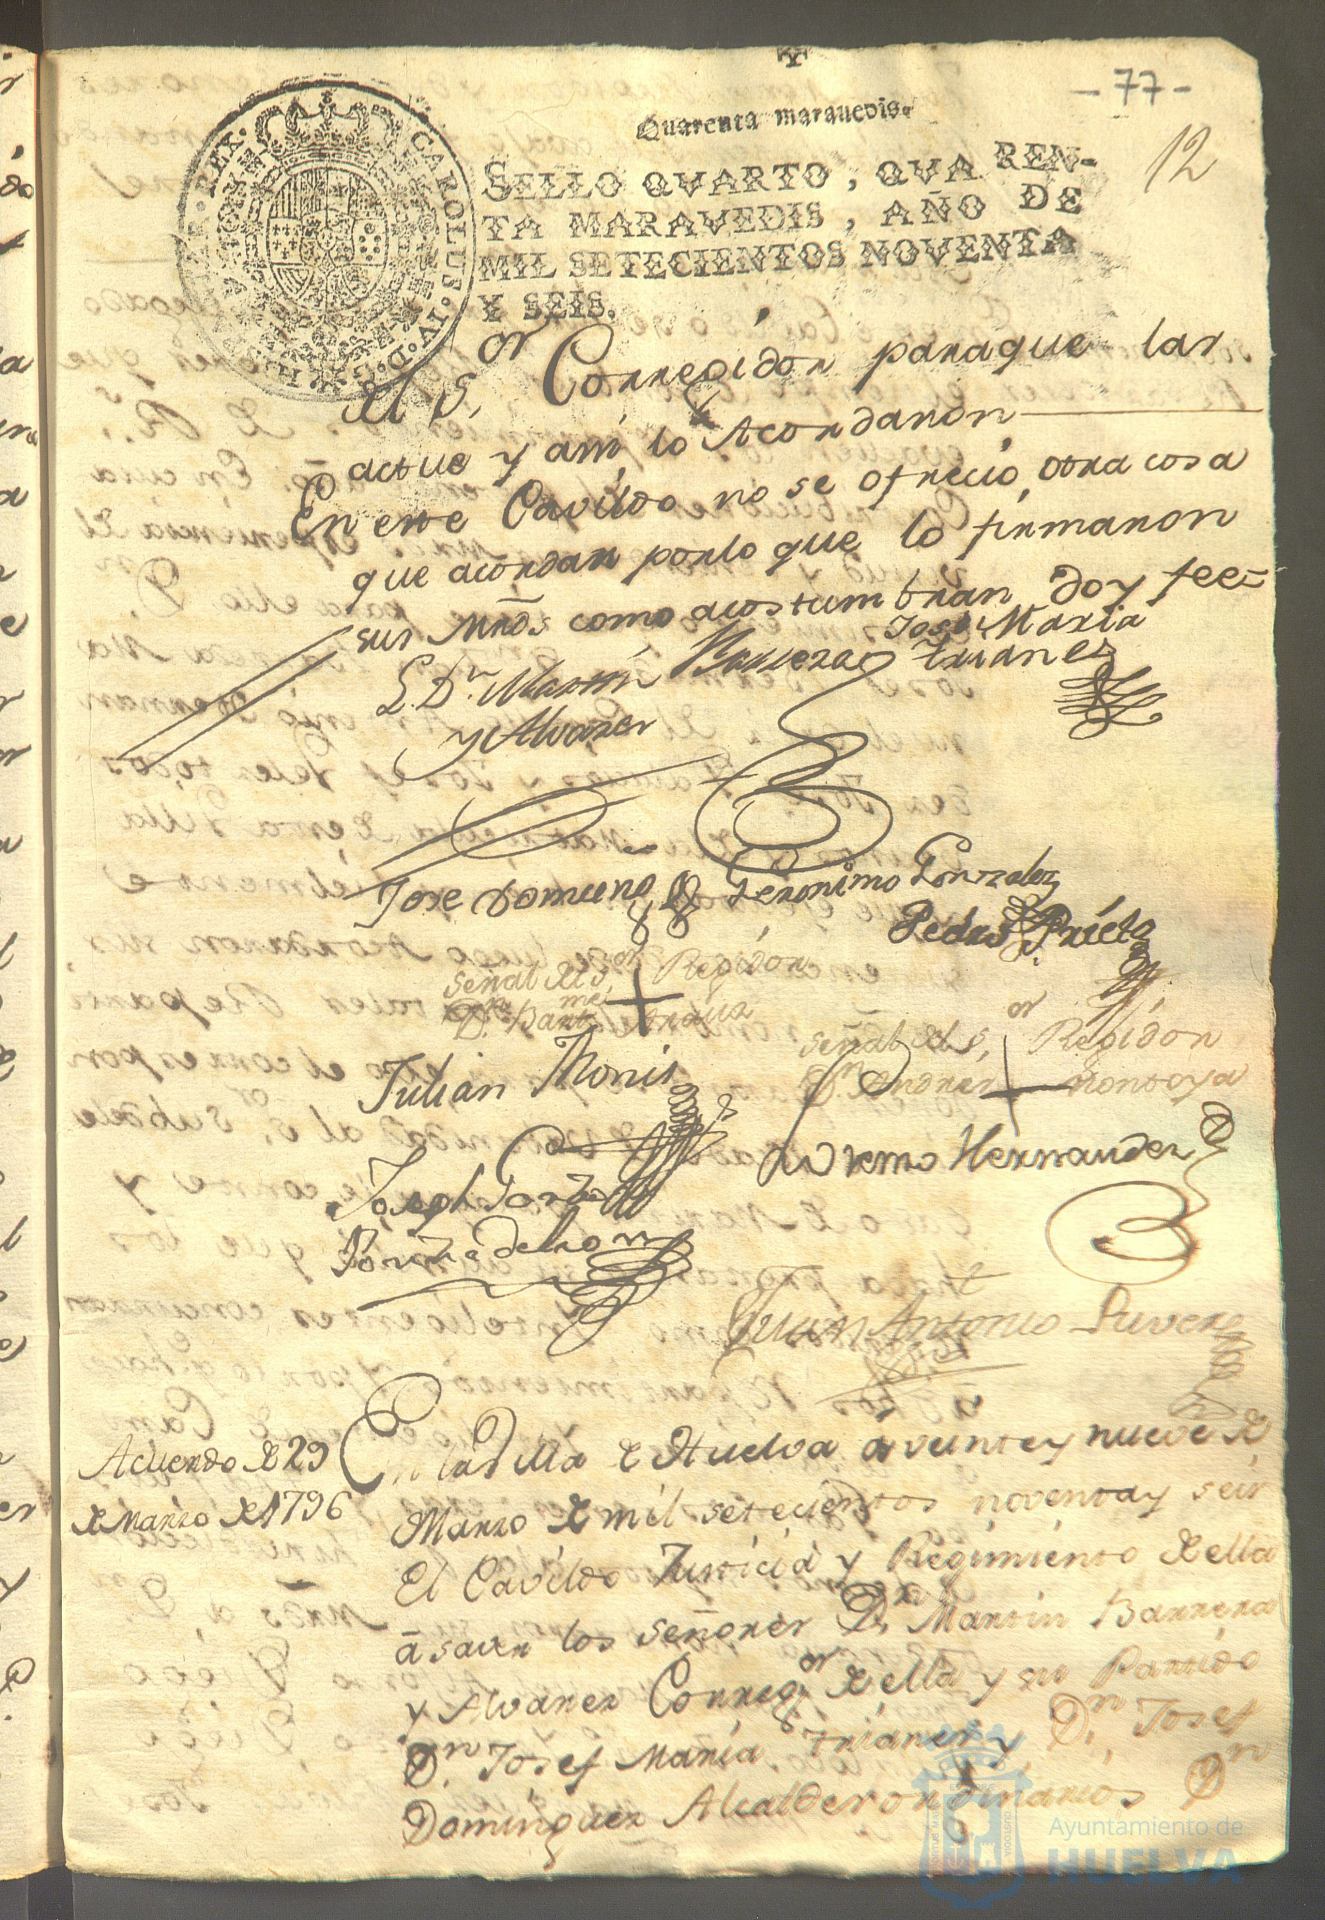 -77-
12
Quarenta maravedis.
SELLO QVARTO, QVAREN-
TA MARAVEDIS, AÑO DE
MIL SETECIENTOS NOVENTA
Y SEIS.
CAROLUS · IV · D · G ·
REX ·
el S.or Corregidor paraque las
actue y assi lo Acordaron
En este Cavildo no se ofrecio otra cosa
que acordar porlo que lo firmaron
sus Mrds como acostumbran doy fee=
L. Dn. Martin Barrera
y Alvarez
José Maria
Trianes
Jose Domung.z
Geronimo Gonzalez
Pedro Prieto
señal del S.or Regidor
Dn. Bart.me Arauz
señal del S.or Regidor
Dn. Andres Montoya
Julian Monis
Joseph
Lorenzo Hernandez
Juan Antonio Rivero
Acuerdo de 29
de Marzo de 1796
En la Villa de Huelva a veinte y nueve de
Marzo de mil setecientos noventa y seis
El Cavildo Justicia y Regimiento de ella
a saver los señores Dn. Martin Barrera
y Alvarez Correg.or de ella y su Partido
Dn. Josef Maria Trianes y Dn. Josef
Dominguez Alcaldes ordinarios Dn
Ayuntamiento de
HUELVA